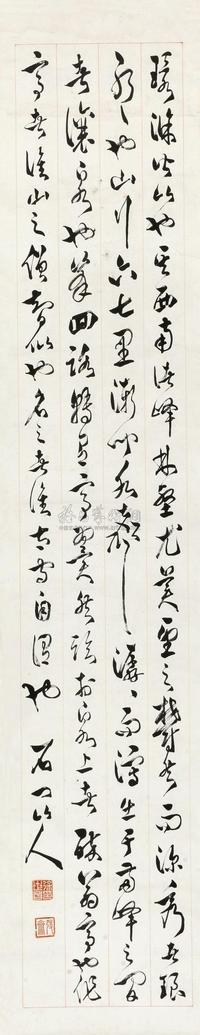 環滁皆山也其西南諸峰林壑尤美望之蔚然而深秀者琅
琊也山行六七里漸聞水聲潺潺而瀉出于兩峰之間
者釀泉也峯回路轉有亭翼然臨於泉上者醉翁亭也作
亭者誰山之僧智仙也名之者誰太守自謂也 石門山人